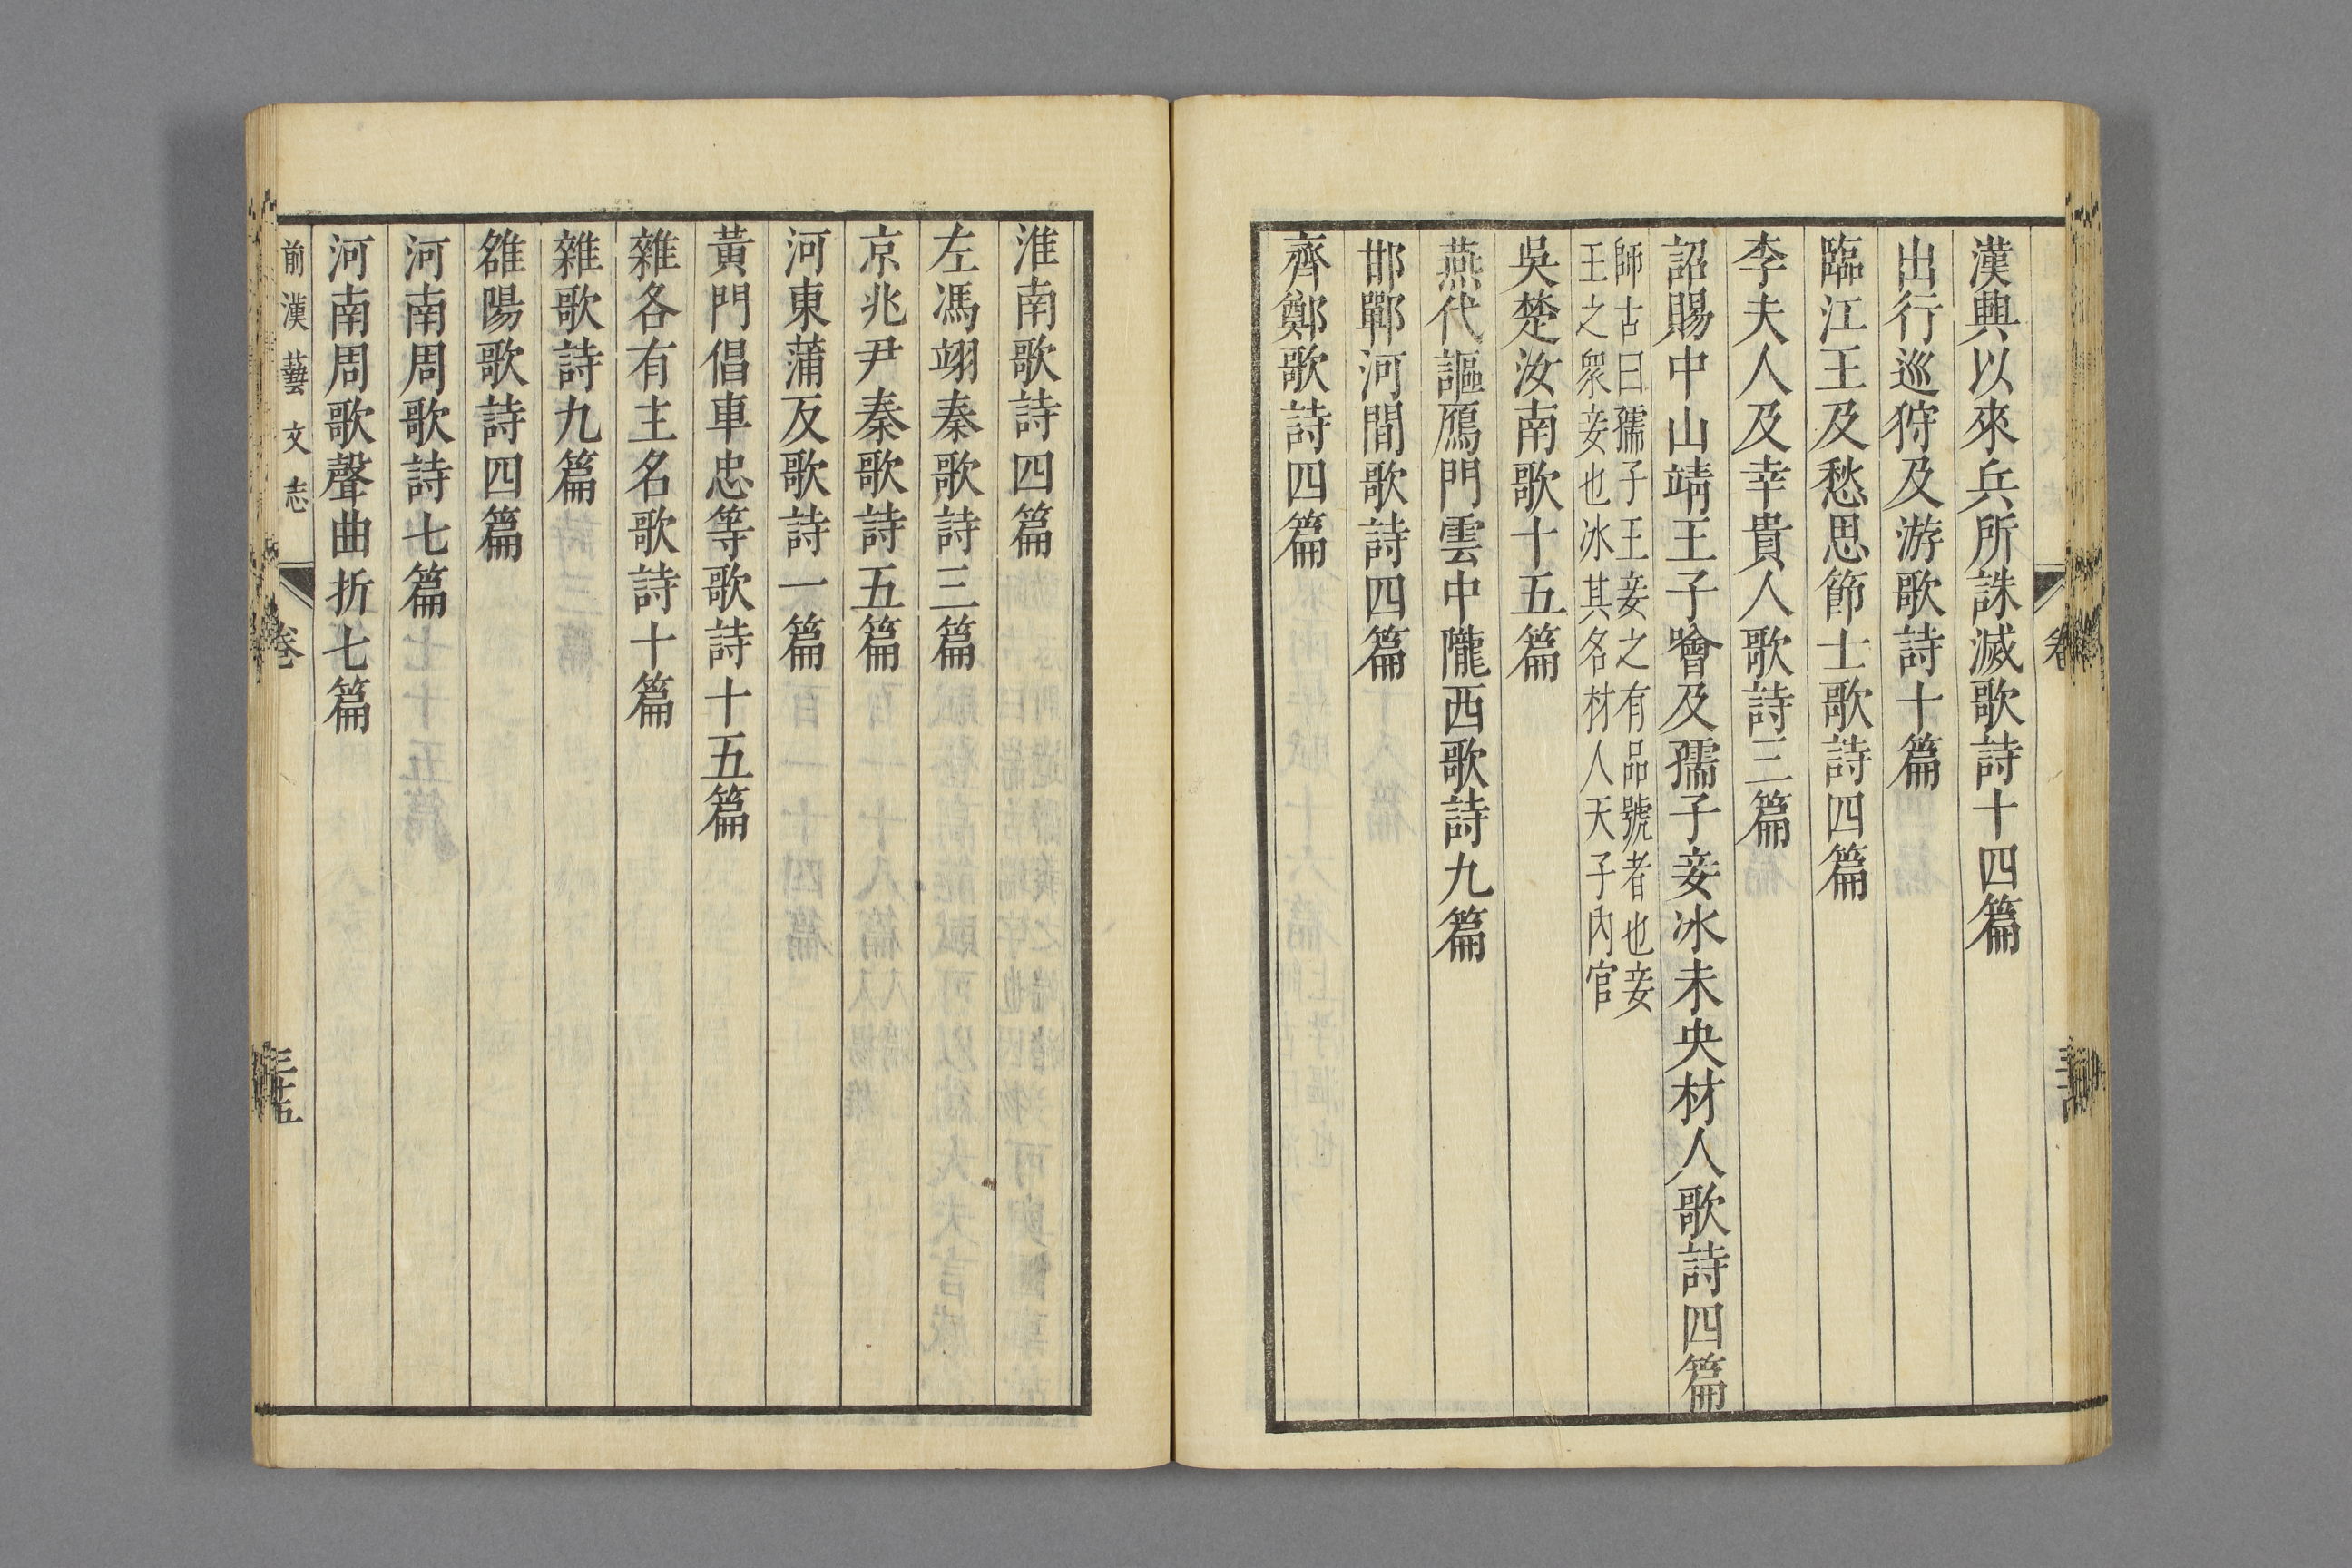 漢興以來兵所誅滅歌詩十四篇
出行巡狩及游歌詩十篇
臨江王及愁思節士歌詩四篇
李夫人及幸貴人歌詩三篇
詔賜中山靖王子噲及孺子妾冰未央材人歌詩四篇
師古曰孺子王妾之有品號者也妾
王之衆妾也冰其名材人天子內官
吳楚汝南歌十五篇
燕代謳鴈門雲中隴西歌詩九篇
邯鄲河間歌詩四篇
齊鄭歌詩四篇
淮南歌詩四篇
左馮翊秦歌詩三篇
京兆尹秦歌詩五篇
河東蒲反歌詩一篇
黃門倡車忠等歌詩十五篇
雜各有主名歌詩十篇
雜歌詩九篇
雒陽歌詩四篇
河南周歌詩七篇
河南周歌聲曲折七篇
前漢藝文志 卷 三十五